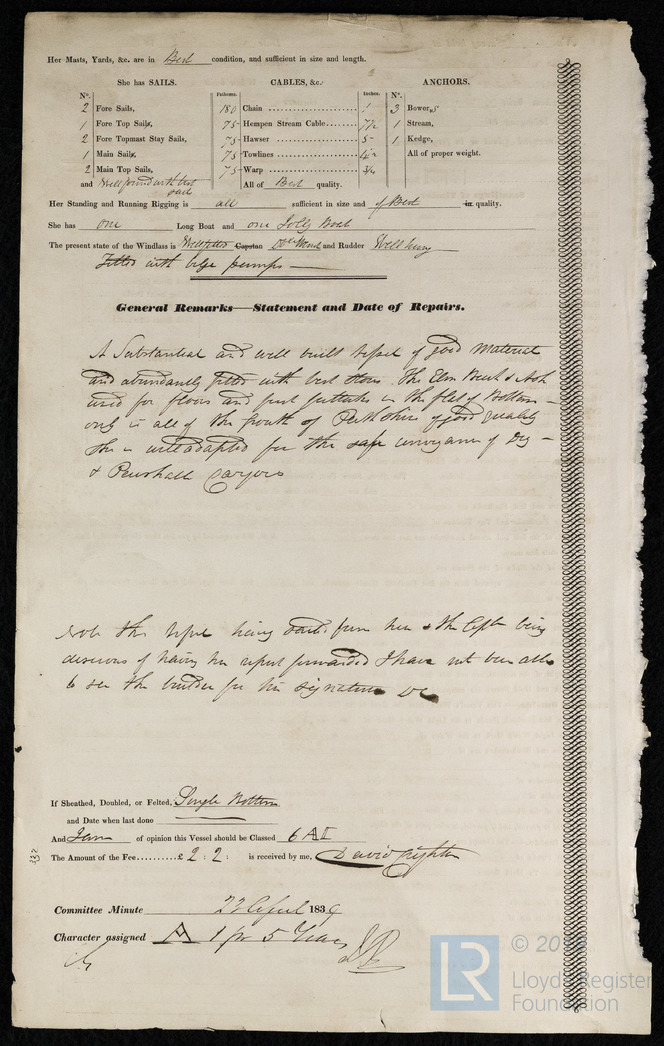 Her Masts, Yards, &c. are in Best condition, and sufficient in size and length.
She has SAILS. CABLES, &c. ANCHORS.
No. Fathoms. Inches. No.
2 Fore Sails, 180 Chain 1 3 Bowers
1 Fore Top Sails, 75 Hempen Stream Cable 7½ 1 Stream,
2 Fore Topmast Stay Sails, 75 Hawser 5 1 Kedge,
1 Main Sails, 75 Towlines 4½ All of proper weight.
2 Main Top Sails, 75 Warp 3½
and Well found with best All of Best quality.
sails
Her Standing and Running Rigging is all sufficient in size and of Best in quality.
She has one Long Boat and one Jolly Boat
The present state of the Windlass is Well fitted Capstan Do & Winch and Rudder Well hung
Fitted with bilge pumps
General Remarks—Statement and Date of Repairs.
A Substantial and well built Vessel of good Material
and abundantly fitted with best Stores. The Elm Beech & Ash
used for floors and first futtocks in the flat of Bottom
only is all of the growth of Perthshire of good quality
She is well adapted for the safe conveyance of Dry
& Perishable Cargoes
Note this Vessel having sailed from here & the Captn being
desirous of having her report forwarded I have not been able
to see the builder for his signature &c
If Sheathed, Doubled, or Felted, Single Bottom
and Date when last done
And I am of opinion this Vessel should be Classed 6 A I
The Amount of the Fee £ 2 : 2 : is received by me, David
332
Committee Minute 23 April 1839
Character assigned A 1 for 5 Years
LR © Lloyd's Register
Foundation